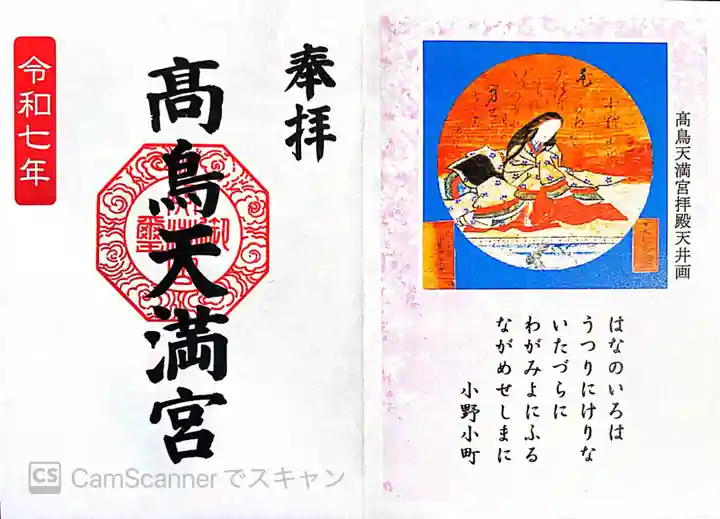 奉拝
髙鳥天満宮
令和七年
髙鳥天満宮拝殿天井画
小野小町
はなのいろは
うつりにけりな
いたづらに
わがみよにふる
ながめせしまに
小野小町
CS CamScanner でスキャン